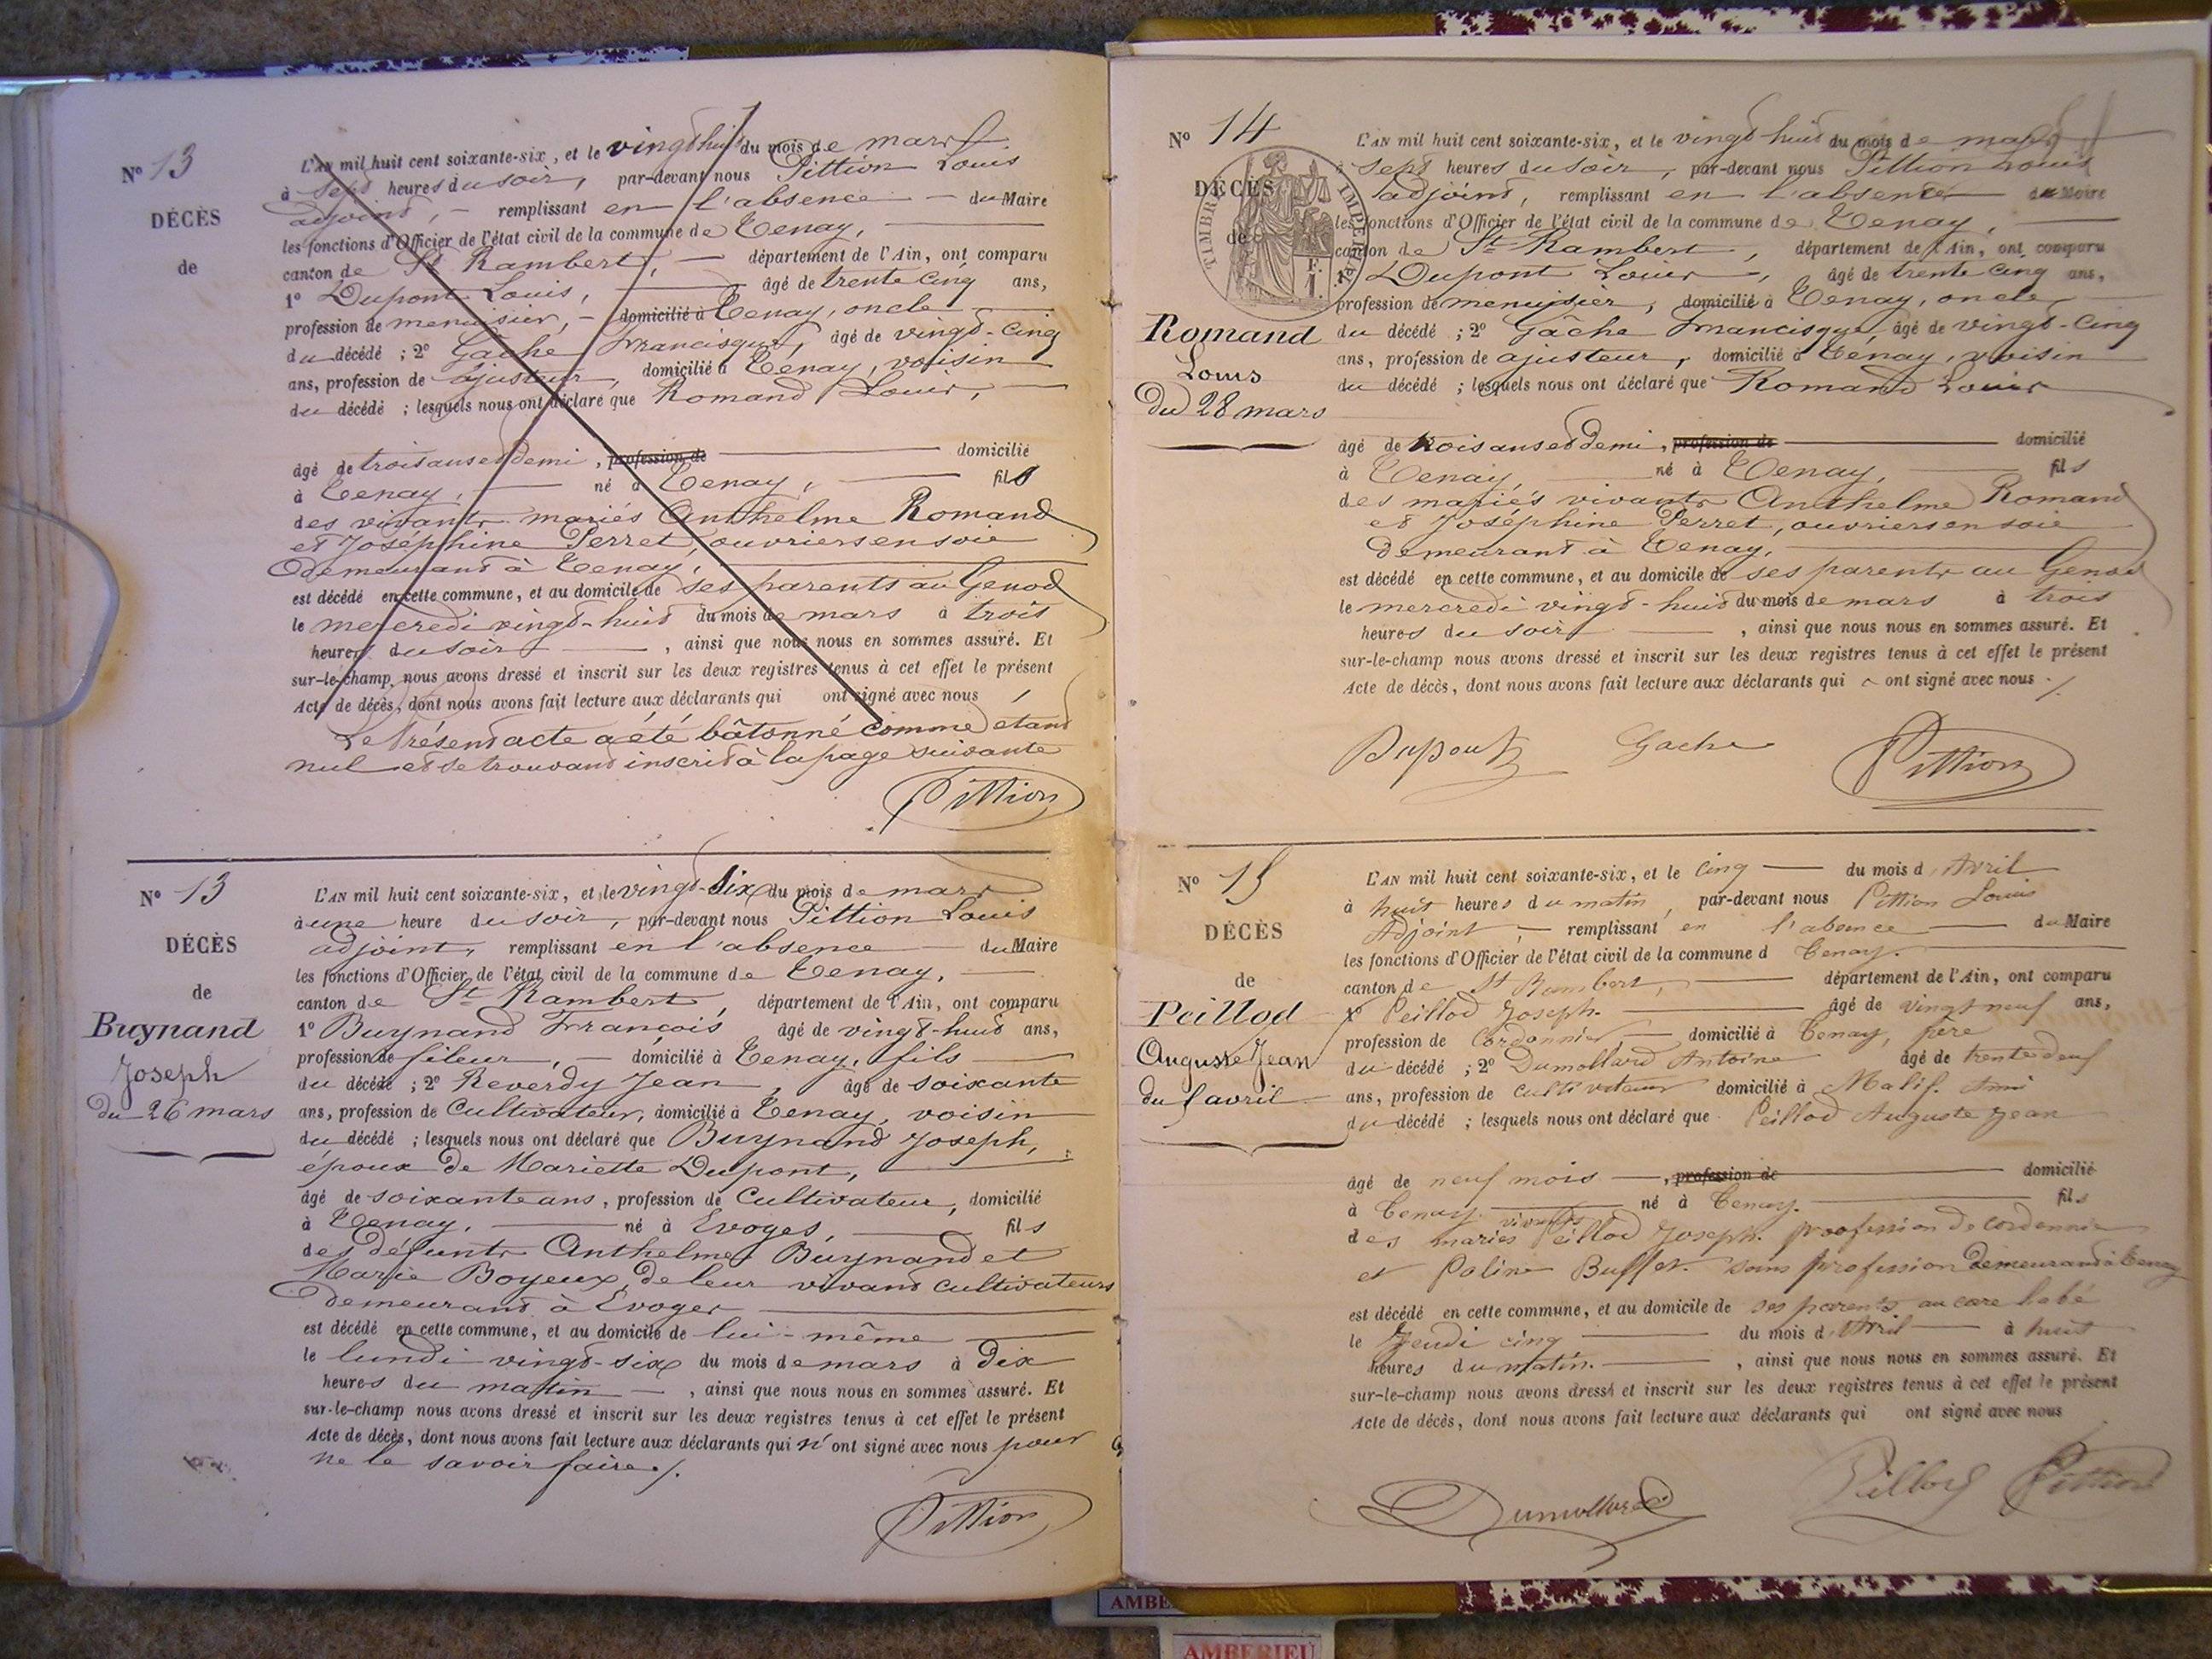 Nº 13
DÉCÈS
de
L'AN mil huit cent soixante-six, et le vingt huit du mois de mars
à sept heures du soir, par-devant nous Pittion Louis
adjoint, remplissant en l'absence du Maire
les fonctions d'Officier de l'état civil de la commune de Tenay,
canton de St Rambert, département de l'Ain, ont comparu
1º Dupont Louis, âgé de trente cinq ans,
profession de menuisier, domicilié à Tenay, oncle
du décédé ; 2º Gâche Francisque, âgé de vingt-cinq
ans, profession de ajusteur, domicilié à Tenay, voisin
du décédé ; lesquels nous ont déclaré que Romand Louis,
âgé de trois ans et demi, profession de domicilié
à Tenay, né à Tenay, fils
des vivants mariés Anthelme Romand
et Joséphine Perret, ouvriers en soie
demeurant à Tenay,
est décédé en cette commune, et au domicile de ses parents au Genod
le mercredi vingt-huit du mois de mars à trois
heures du soir, ainsi que nous nous en sommes assuré. Et
sur-le-champ nous avons dressé et inscrit sur les deux registres tenus à cet effet le présent
Acte de décès, dont nous avons fait lecture aux déclarants qui ont signé avec nous
Le Présent acte a été bâtonné comme étant
nul et se trouvant inscrit à la page suivante
Pittion
Nº 13
DÉCÈS
de
Buynand
Joseph
du 26 mars
L'AN mil huit cent soixante-six, et le vingt-six du mois de mars
à une heure du soir, par-devant nous Pittion Louis
adjoint, remplissant en l'absence du Maire
les fonctions d'Officier de l'état civil de la commune de Tenay,
canton de St Rambert, département de l'Ain, ont comparu
1º Buynand François âgé de vingt-huit ans,
profession de fileur, domicilié à Tenay, fils
du décédé ; 2º Reverdy Jean, âgé de soixante
ans, profession de Cultivateur, domicilié à Tenay, voisin
du décédé ; lesquels nous ont déclaré que Buynand Joseph,
époux de Mariette Dupont,
âgé de soixante ans, profession de Cultivateur, domicilié
à Tenay, né à Evoges, fils
des défunts Anthelme Buynand et
Marie Boyeux, de leur vivant cultivateurs
demeurant à Evoges
est décédé en cette commune, et au domicile de lui-même
le lundi vingt-six du mois de mars à dix
heures du matin, ainsi que nous nous en sommes assuré. Et
sur-le-champ nous avons dressé et inscrit sur les deux registres tenus à cet effet le présent
Acte de décès, dont nous avons fait lecture aux déclarants qui n'ont signé avec nous pour
ne le savoir faire ./.
Pittion
Nº 14
DÉCÈS
de
TIMBRE IMPÉRIAL
Romand
Louis
du 28 mars
L'AN mil huit cent soixante-six, et le vingt-huit du mois de mars
à sept heures du soir, par-devant nous Pittion Louis
adjoint, remplissant en l'absence du Maire
les fonctions d'Officier de l'état civil de la commune de Tenay,
canton de St Rambert, département de l'Ain, ont comparu
1º Dupont Louis, âgé de trente cinq ans,
profession de menuisier, domicilié à Tenay, oncle
du décédé ; 2º Gâche Francisque, âgé de vingt-cinq
ans, profession de ajusteur, domicilié à Tenay, voisin
du décédé ; lesquels nous ont déclaré que Romand Louis
âgé de trois ans et demi, profession de domicilié
à Tenay, né à Tenay, fils
des mariés vivants Anthelme Romand
et Joséphine Perret, ouvriers en soie
demeurant à Tenay,
est décédé en cette commune, et au domicile de ses parents au Genod
le mercredi vingt-huit du mois de mars à trois
heures du soir, ainsi que nous nous en sommes assuré. Et
sur-le-champ nous avons dressé et inscrit sur les deux registres tenus à cet effet le présent
Acte de décès, dont nous avons fait lecture aux déclarants qui ont signé avec nous ./.
Dupont Gache Pittion
Nº 15
DÉCÈS
de
Peillod
Auguste Jean
du 5 avril
L'AN mil huit cent soixante-six, et le cinq du mois d'Avril
à huit heures du matin, par-devant nous Pittion Louis
Adjoint, remplissant en l'absence du Maire
les fonctions d'Officier de l'état civil de la commune d Tenay.
canton de St Rambert, département de l'Ain, ont comparu
1º Peillod Joseph. âgé de vingt neuf ans,
profession de Cordonnier domicilié à Tenay, père
du décédé ; 2º Dumollard Antoine âgé de trente deuf
ans, profession de cultivateur domicilié à Malif. Ami
du décédé ; lesquels nous ont déclaré que Peillod Auguste Jean
âgé de neuf mois, profession de domicilié
à Tenay. né à Tenay. fils
des mariés vivants Peillod Joseph. proofession de cordonnie
et Poline Buffet. sans profession demeurant à Tenay
est décédé en cette commune, et au domicile de ses parents au
le Jeudi cinq du mois d'Avril à huit
heures du matin., ainsi que nous nous en sommes assuré. Et
sur-le-champ nous avons dressé et inscrit sur les deux registres tenus à cet effet le présent
Acte de décès, dont nous avons fait lecture aux déclarants qui ont signé avec nous
Dumollard Peillod Pittion
AMBE
AMBERIEU